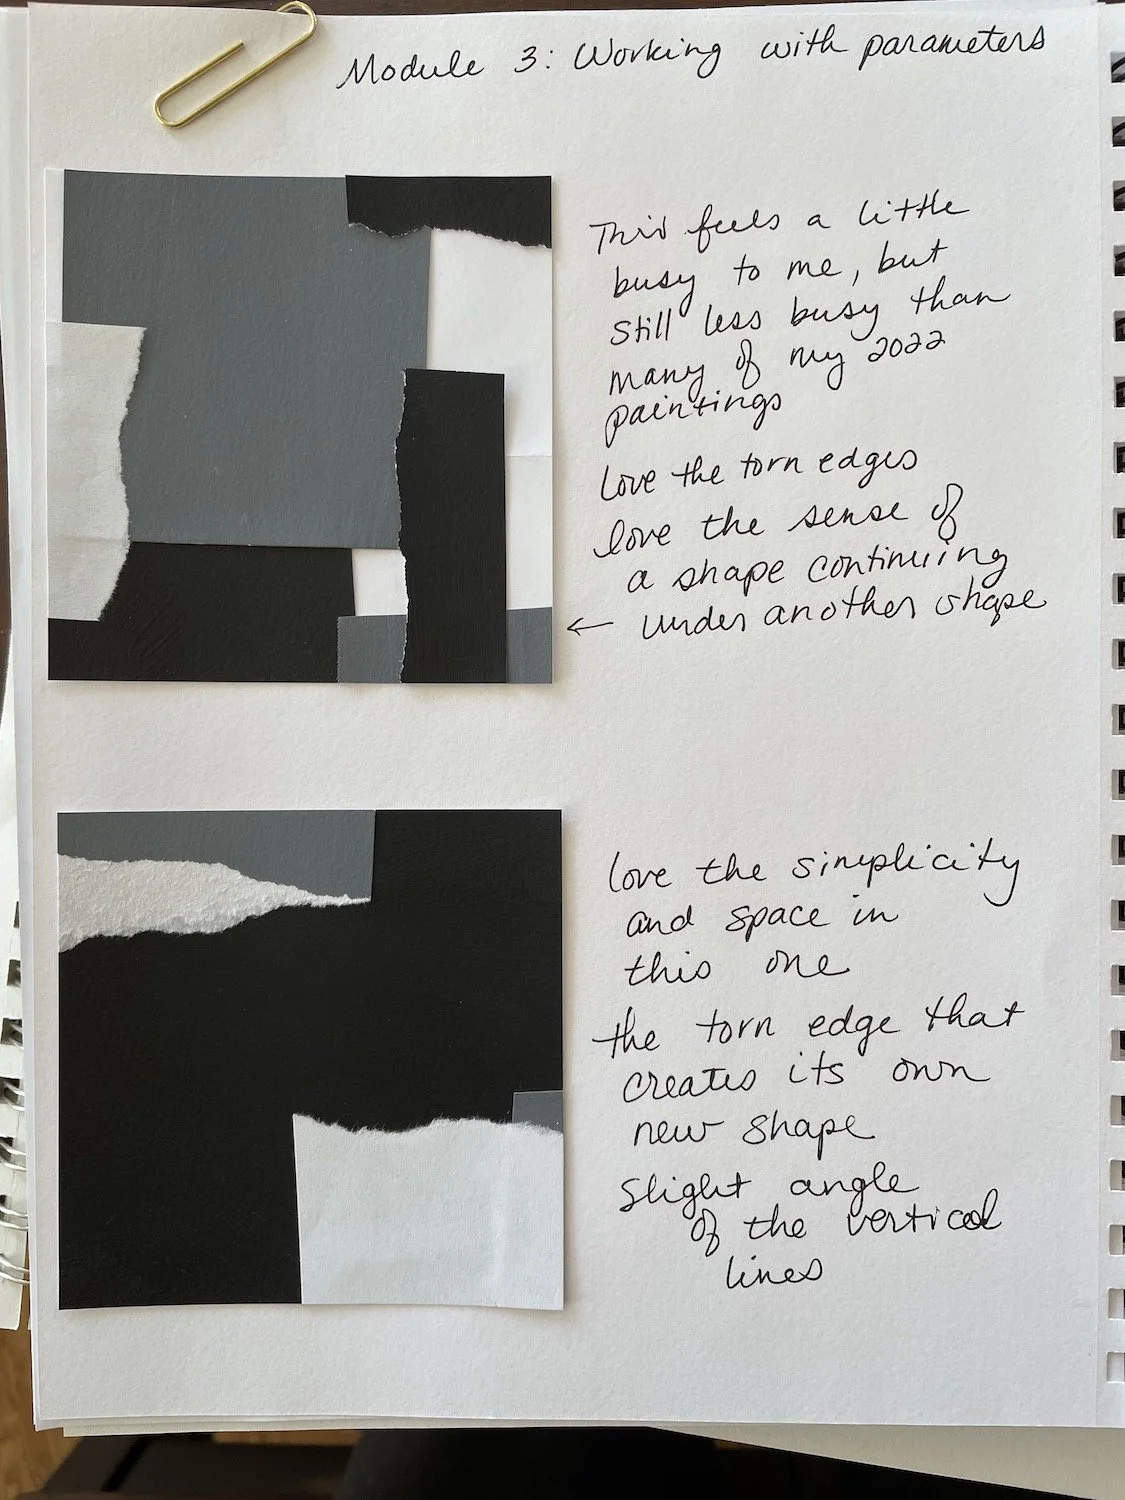 Module 3: Working with parameters
This feels a little
busy to me, but
still less busy than
many of my 2022
paintings
love the torn edges
love the sense of
a shape continuing
← under another shape
love the simplicity
and space in
this one
the torn edge that
creates its own
new shape
slight angle
of the vertical
lines